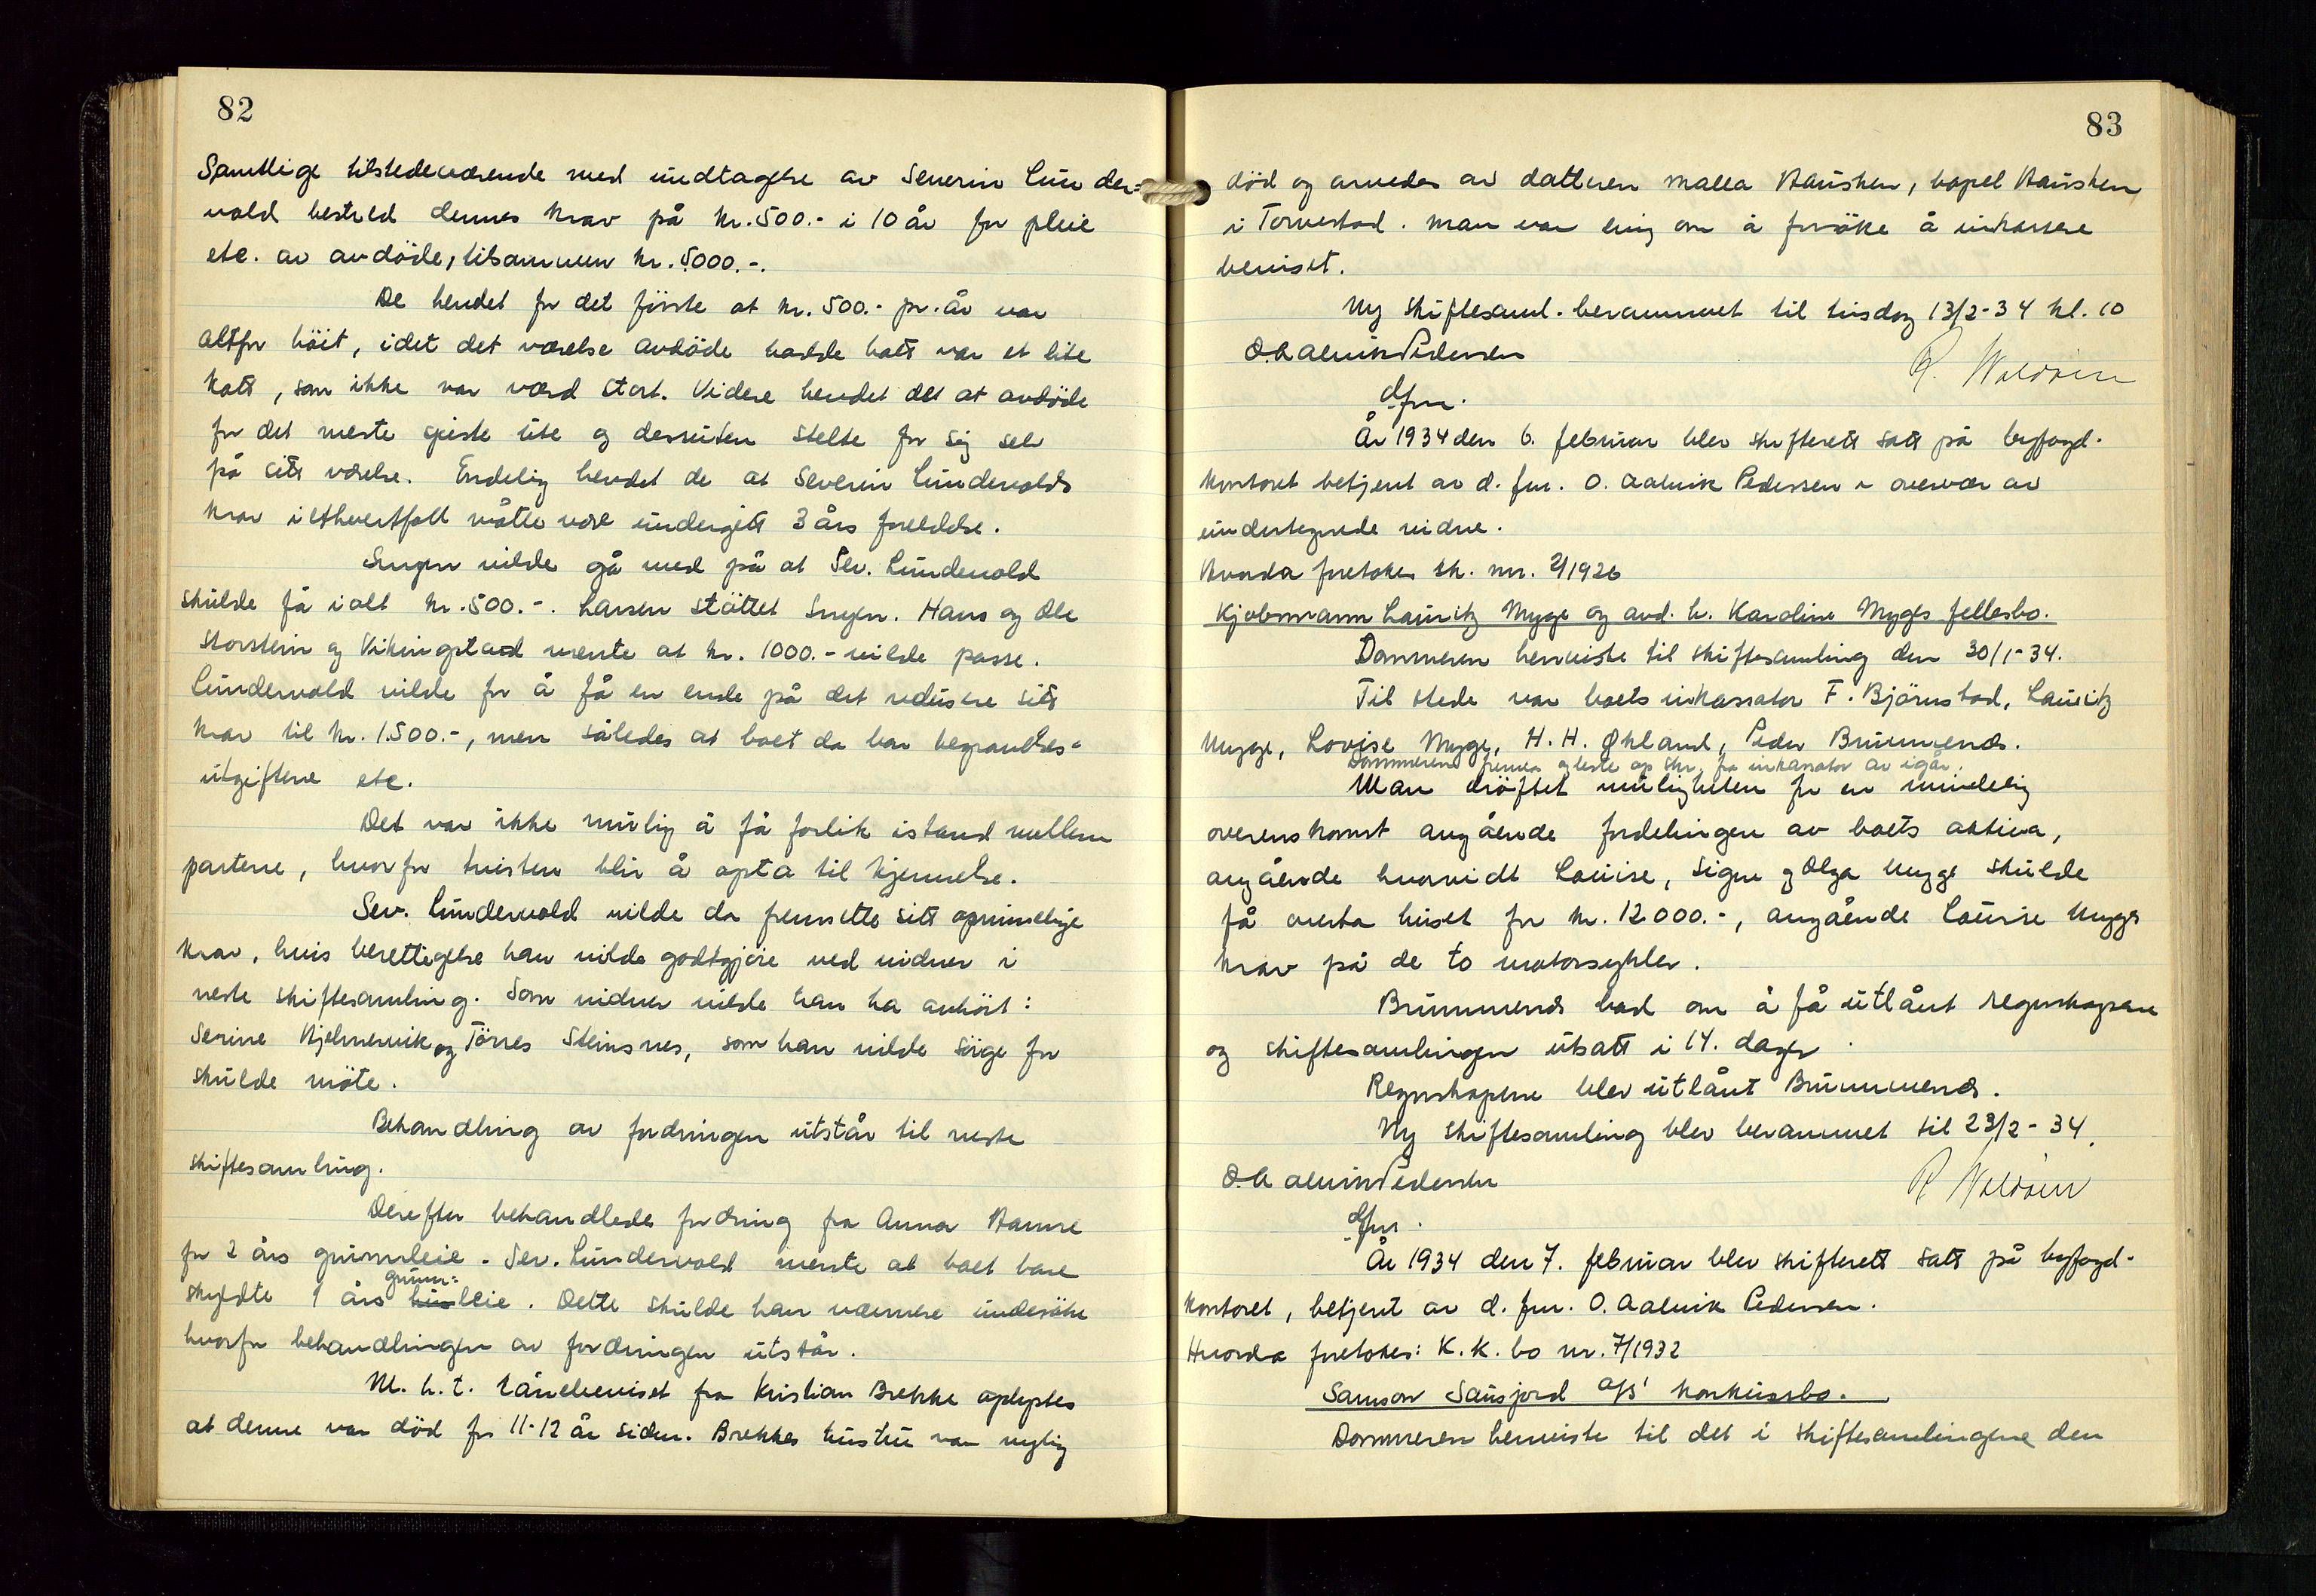 82
Samtlige tilstedeværende med undtagelse av Severin Lunder=
vold bestred dennes krav på kr. 500.- i 10 år for pleie
etc. av avdöde, tilsammen kr. 5000.-.
De hevdet for det förste at kr. 500.- pr. år var
altfor höit, idet det værelse avdöde hadde hatt var et lite
kott, som ikke var værd stort. Videre hevdet det at avdöde
for det meste spiste ute og dessuten stelte for sig selv
på sitt værelse. Endelig hevdet de at Severin Lundervolds
krav i ethvertfall måtte være undergitt 3 års foreldelse.
vilde gå med på at Sev. Lundervold
skulde få i alt kr. 500.-. Larsen stöttet. Hans og Ole
Storstein og Vikingstad mente at kr. 1000.- vilde passe.
Lundervold vilde for å få en ende på det redusere sitt
krav til kr. 1500.-, men således at boet da bar begravelses=
utgiftene etc.
Det var ikke mulig å få forlik istand mellem
partene, hvorfor tvisten blir å opta til kjennelse.
Sev. Lundervold vilde da fremsette sitt oprinnelige
krav, hvis berettigelse han vilde godtgjöre ved vidner i
neste skiftesamling. Som vidner vilde han ha anhört:
Serine Hjelmervik og Törres Steinsnes, som han vilde sörge for
skulde möte.
Behandling av fordringen utstår til neste
skiftesamling.
Derefter behandledes fordring fra Anna Hamre
for 2 års grunnleie. Sev. Lundervold mente at boet bare
grunn=
skyldte 1 års husleie. Dette skulde han nærmere undersöke
hvorfor behandlingen av fordringen utstår.
M. h. t. lånebeviset fra Kristian Brekke oplystes
at denne var död for 11-12 år siden. Brekkes hustru var nylig
83
död og arvedes av datteren Malla Hausken, bopel Hausken
i Torvestad. Man var enig om å forsöke å inkassere
beviset.
Ny skiftesaml. berammet til tirsdag 13/2-34 kl. 10
O. Aalvik Pedersen
R. Waldain
dfm.
År 1934 den 6. februar blev skifterett satt på byfogd-
kontoret betjent av d. fm. O. Aalvik Pedersen i overvær av
undertegnede vidne.
Hvorda foretokes sk. nr. 2/1926
Kjöbmann Lauritz Mygg og avd. h. Karoline Myggs fellesbo.
Dommeren henviste til skiftesamling den 30/1-34.
Til stede var boets inkassator F. Björnstad, Lauritz
Mygge, Lovise Mygge, H. H. Økland, Peder Brummenæs.
Dommeren fremla og leste op skr. fra inkassator av igår.
Man dröftet muligheten for en mindelig
overenskomst angående fordelingen av boets aktiva,
angående hvorvidt Louise, Signe og Olga Mygge skulde
få overta huset for kr. 12000.-, angående Louise Mygges
krav på de to motorsykler.
Brummenæs bad om å få utlånt regnskapene
og skiftesamlingen utsatt i 14. dager.
Regnskapene blev utlånt Brummenæs.
Ny skiftesamling blev berammet til 23/2-34.
O. Aalvik Pedersen
R Waldain
dfm.
År 1934 den 7. februar blev skifterett satt på byfogd-
kontoret, betjent av d. fm. O. Aalvik Pedersen.
Hvorda foretokes: K. K. bo nr. 7/1932
Samson Sausjord a/s' konkursbo.
Dommeren henviste til det i skiftesamlingene den